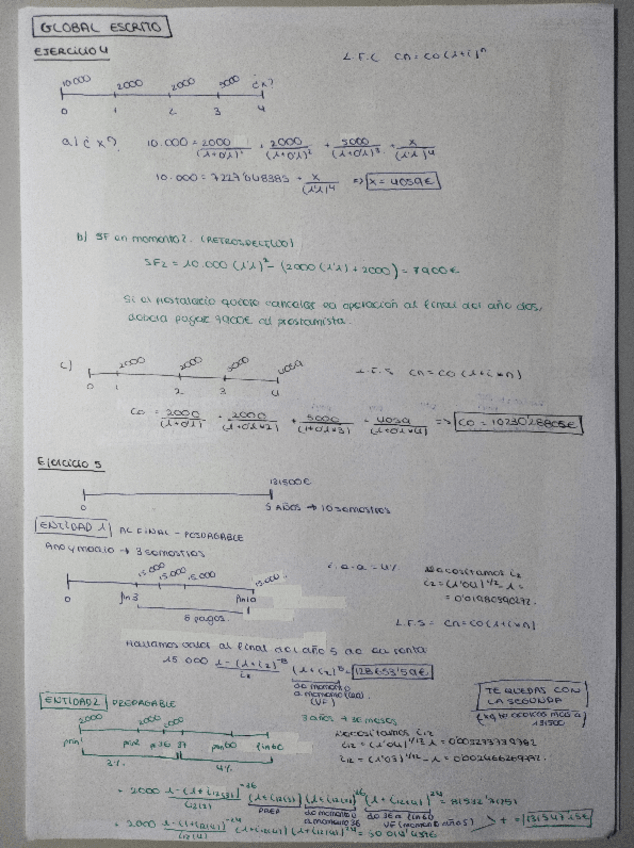 GLOBAL ESCRITO
EJERCICIO 4
L.F.C Cn=Co(1+i)^n
10.000 2000 2000 5000 ¿x?
0 1 2 3 4
a) ¿x? 10.000 = 2000/(1+0'1)^1 + 2000/(1+0'1)^2 + 5000/(1+0'1)^3 + x/(1'1)^4
10.000 = 7227'048385 + x/(1'1)^4 => x = 4059€
b) SF en momento 2. (RETROSPECTIVO)
SF2 = 10.000 (1'1)^2 - (2000 (1'1) + 2000) = 7900€
Si el prestatario quiere cancelar la operación al final del año dos,
debería pagar 7900€ al prestamista.
c) 2000 2000 5000 4059
0 1 2 3 4
L.F.S Cn=Co(1+i×n)
Co = 2000/(1+0'1) + 2000/(1+0'1×2) + 5000/(1+0'1×3) + 4059/(1+0'1×4) => Co =
Ejercicio 5
131500€
0 5 AÑOS → 10 semestres
ENTIDAD 1 AL FINAL - POSPAGABLE
Año y medio → 3 semestres
15.000 15.000 15.000 15.000
0 fin 3 fin 10
8 pagos.
T.A.E = 4%
Necesitamos i2
i2 = (1'04)^1/2 - 1 =
= 0'01980390272.
L.F.S = Cn=Co(1+i×n)
Hallamos valor al final del año 5 de la renta
15 000 1-(1+i2)^-8/i2 (1+i2)^8 = 128653'59€
de momento
a momento
(VF)
TE QUEDAS CON
LA SEGUNDA
131500
ENTIDAD 2 PREPAGABLE
3 años → 36 meses
2000 2000 2000
prin 1 fin 60
3% 4%
Necesitamos i12
i12 = (1'04)^1/12 - 1 = 0'003273739782
i12 = (1'03)^1/12 - 1 = 0'002466269772.
2000 1-(1+i12(3))^-36/i12(3) (1+i12(3)) (1+i12(3))^36 (1+i12(4))^24 =
PREP de momento 0 a momento 36 de 36 a fin 60
2000 1-(1+i12(4))^-24/i12(4) (1+i12(4)) (1+i12(4))^24 =